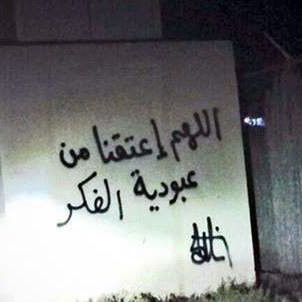 اللهم إعتقنا من
عبودية الفكر